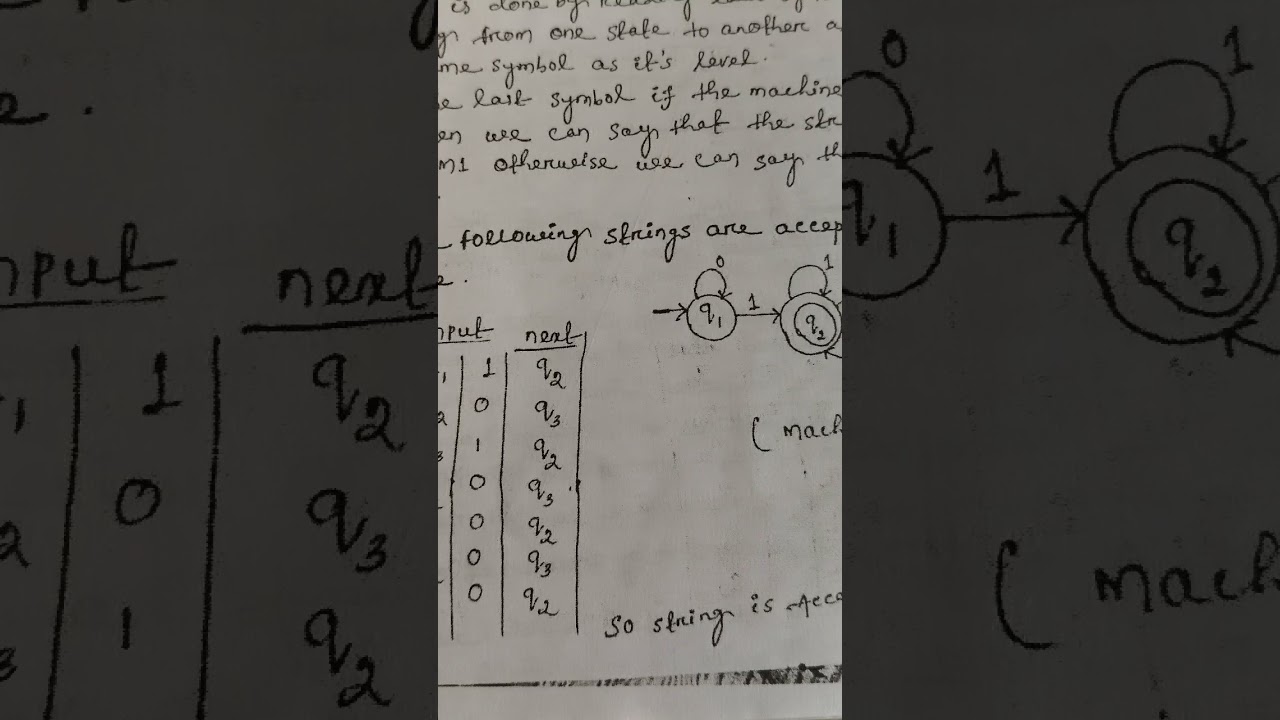 is done by
from one state to another a
me symbol as it's level.
e last symbol if the machine
en we can say that the str
m1 otherwise we can say th
following strings are accep
e.
nput next
1 q2
0 q3
1 q2
0 q3
0 q2
0 q3
0 q2
0 1
q1 1 q2
( mach
So string is Acce